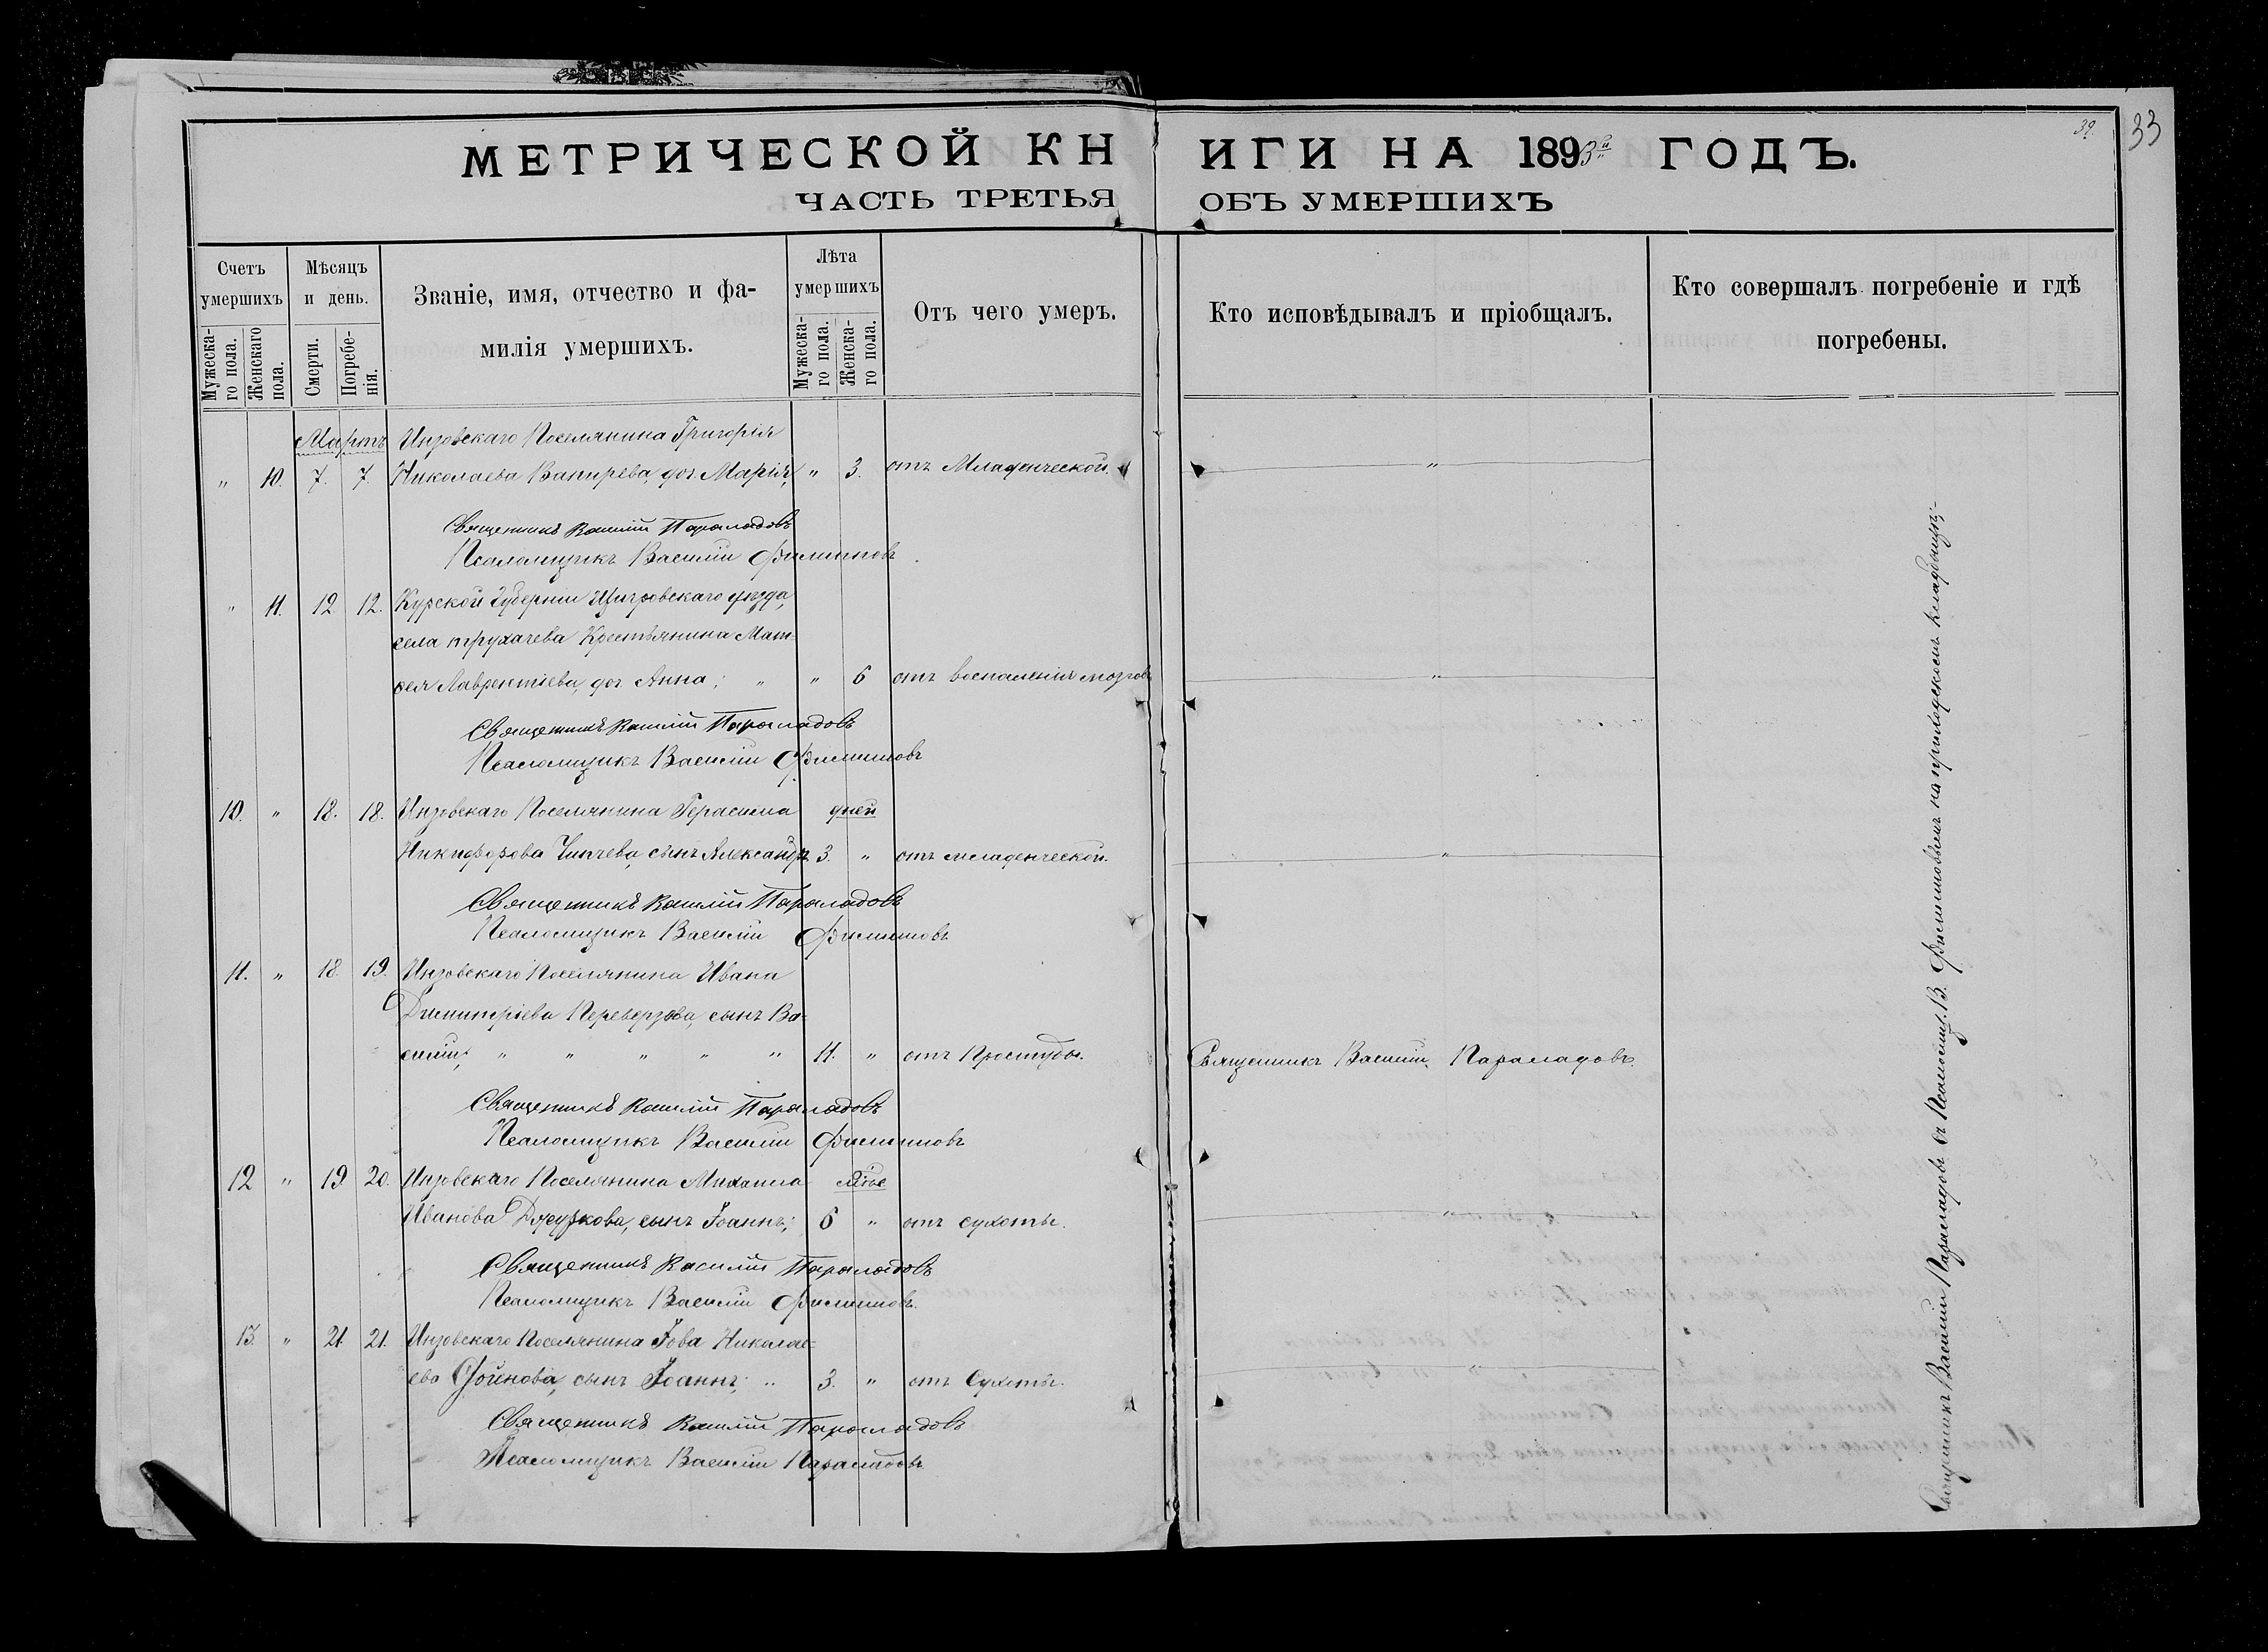 МЕТРИЧЕСКОЙ КНИГИ НА 1893й ГОДЪ.
39.
33
ЧАСТЬ ТРЕТЬЯ ОБЪ УМЕРШИХЪ
Счетъ умершихъ
Мужеска-го пола.
Женскаго пола.
Мѣсяцъ и день.
Смерти.
Погребе-нія.
Званіе, имя, отчество и фа-
милія умершихъ.
Лѣта умершихъ
Мужеска-го пола.
Женска-го пола.
Отъ чего умеръ.
Кто исповѣдывалъ и пріобщалъ.
Кто совершалъ погребеніе и гдѣ
погребены.
Мартъ Инзовскаго Поселянина Григорія
" 10. 7. 7. Николаева Вапирева, доч. Марія, " 3. отъ Младенческой. "
Священникъ Василій Параладовъ
Псаломщикъ Василій Филиповъ
" 11. 12 12. Курской Губерніи Щигровскаго уѣзда,
села трухачева Крестьянина Мат-
ѳея Лаврентіева, доч. Анна; " " 6 отъ воспаленія мозговъ "
Священникъ Василій Параладовъ
Псаломщикъ Василій Филиповъ
10. " 18. 18. Инзовскаго Поселянина Герасима дней
Никифорова Чипчева, сынъ Александръ 3. " отъ младенческой. "
Священникъ Василій Параладовъ
Псаломщикъ Василій Филиповъ
11. " 18. 19. Инзовскаго Поселянина Ивана
Димитріева Переверзова, сынъ Ва-
силій; " " " " " 11. " отъ Простуды. Священникъ Василій Параладовъ.
Священникъ Василій Параладовъ
Псаломщикъ Василій Филиповъ
12 " 19 20. Инзовскаго Поселянина Михаила
Иванова сынъ Іоаннъ; 6 " отъ сухоты. "
Священникъ Василій Параладовъ
Псаломщикъ Василій Филиповъ.
13. " 21. 21. Инзовскаго Поселянина Іова Николае-
ева сынъ Іоаннъ; " 3. " отъ Сухоты. "
Священникъ Василій Параладовъ
Псаломщикъ Василій Параладовъ
Священникъ Василій Параладовъ съ Псаломщ. В. Филиповымъ на приходскомъ кладбищѣ;-